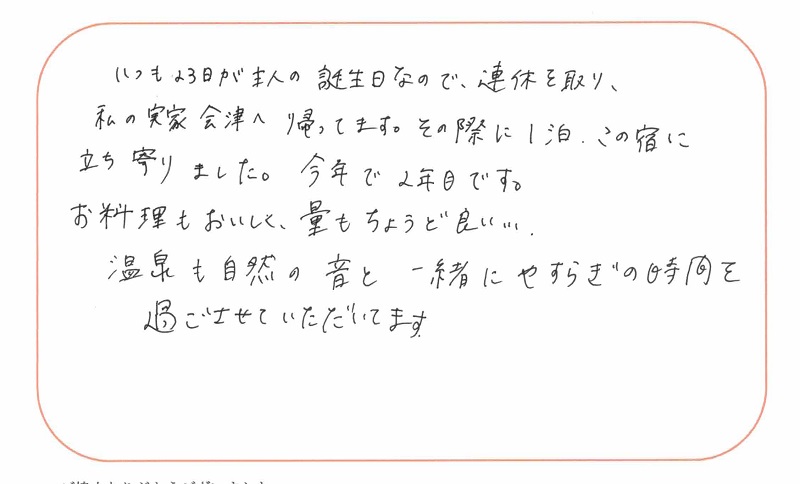 いつも23日が主人の誕生日なので、連休を取り、
私の実家会津へ帰ってます。その際に1泊.この宿に
立ち寄りました。今年で2年目です。
お料理もおいしく、量もちょうど良い….
温泉も自然の音と一緒にやすらぎの時間を
過ごさせていただいてます.